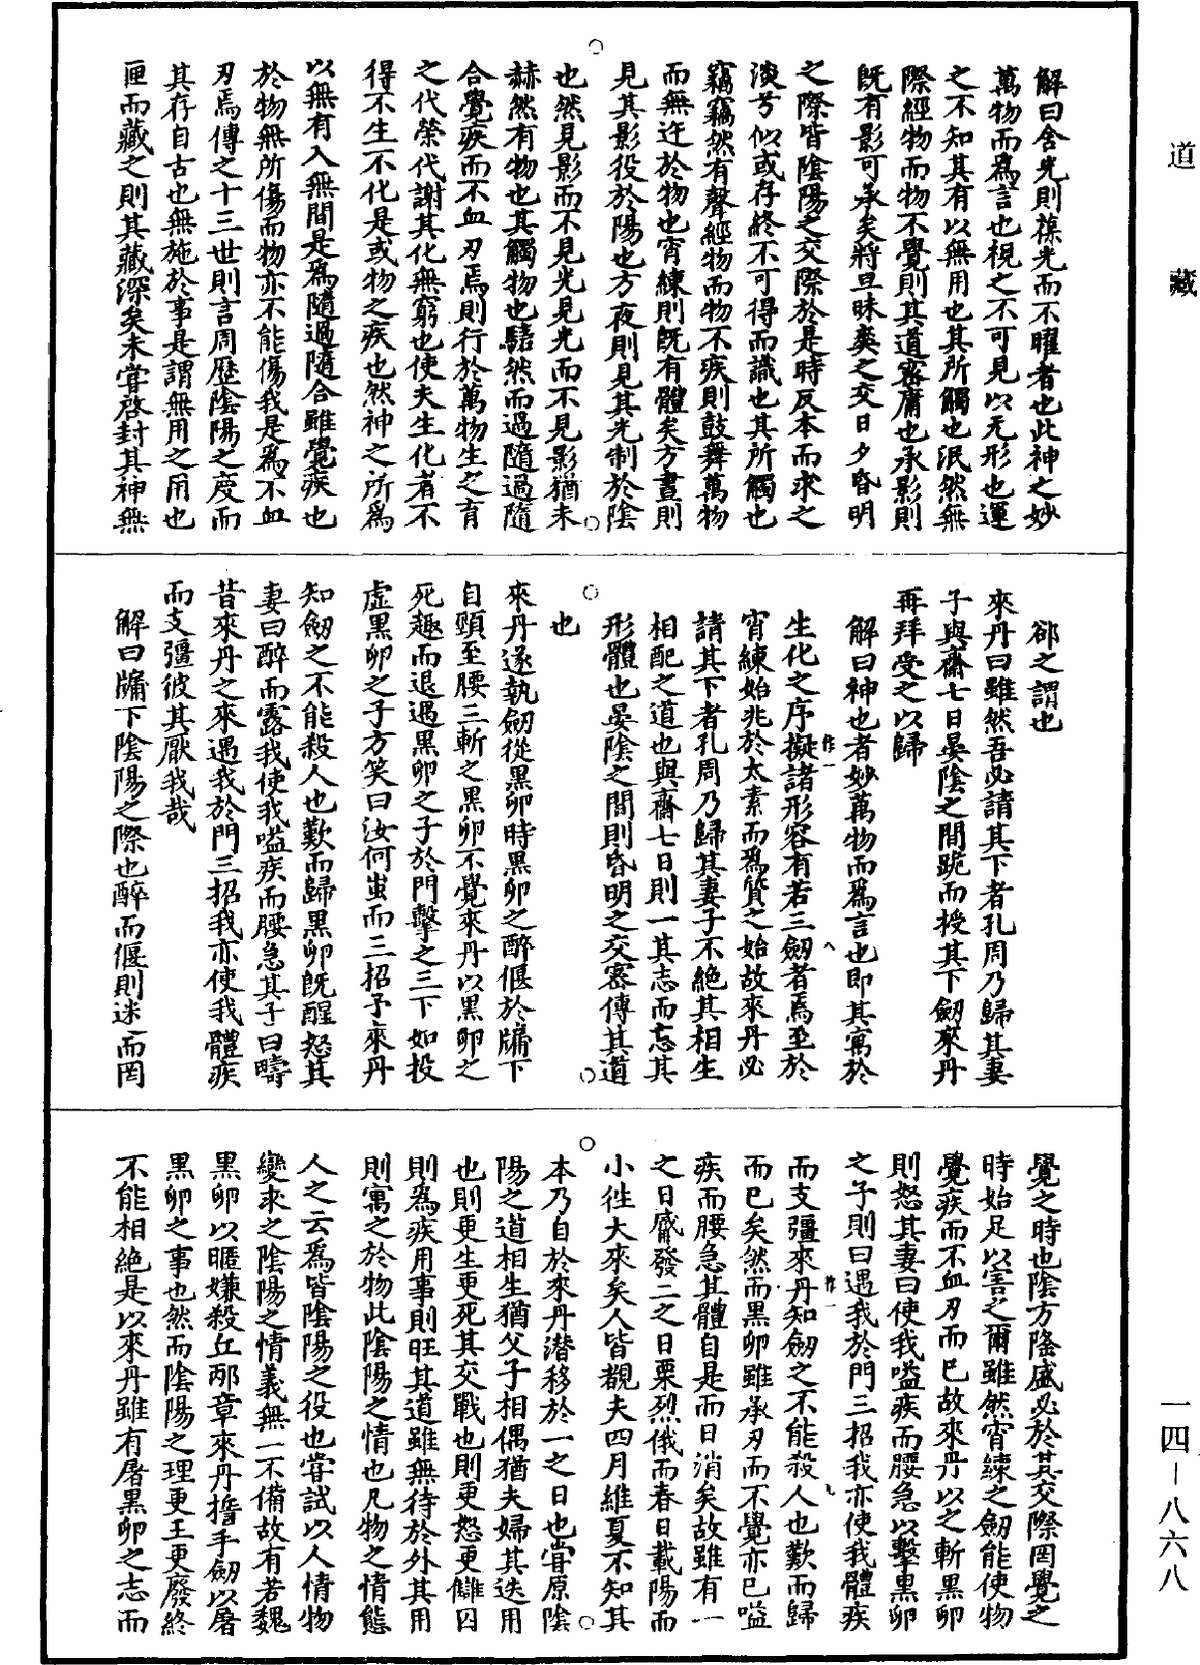 道藏
解曰含光則葆光而不曜者也此神之妙
萬物而爲言也視之不可見以无形也運
之不知其有以無用也其所觸也泯然無
際經物而物不覺則其道密庸也承影則
既有影可承矣將旦昧爽之交日夕昏明
之際皆陰陽之交際於是時反本而求之
淡兮似或存終不可得而識也其所觸也
竊竊然有聲經物而物不疾則鼓舞萬物
而無迕於物也宵練則既有體矣方晝則
見其影役於陽也方夜則見其光制於陰
也然見影而不見光見光而不見影猶未
赫然有物也其觸物也騞然而過隨過隨
合覺疾而不血刃焉則行於萬物生之育
之代榮代謝其化無窮也使夫生化者不
得不生不化是或物之疾也然神之所爲
以無有入無間是爲隨過隨合雖覺疾也
於物無所傷而物亦不能傷我是爲不血
刃焉傳之十三世則言周歷陰陽之度而
其存自古也無施於事是謂無用之用也
匣而藏之則其藏深矣未嘗啓封其神無
郤之謂也
來丹曰雖然吾必請其下者孔周乃歸其妻
子與齋七日晏陰之間跪而授其下劒來丹
再拜受之以歸
解曰神也者妙萬物而爲言也即其寓於
生化之序擬諸形容有若三劒者焉至於
宵練始兆於太素而爲質之始故來丹必
請其下者孔周乃歸其妻子不絕其相生
相配之道也與齋七日則一其志而忘其
形體也晏陰之間則昏明之交密傳其道
也
來丹遂執劒從黑卵時黑卵之醉偃於牖下
自頸至腰三斬之黑卵不覺來丹以黑卵之
死趣而退遇黑卵之子於門擊之三下如投
虛黑卵之子方笑曰汝何蚩而三招予來丹
知劒之不能殺人也歎而歸黑卵既醒怒其
妻曰醉而露我使我嗌疾而腰急其子曰疇
昔來丹之來遇我於門三招我亦使我體疾
而支彊彼其厭我哉
解曰牖下陰陽之際也醉而偃則迷而罔
覺之時也陰方隆盛必於其交際罔覺之
時始足以害之爾雖然宵練之劒能使物
覺疾而不血刃而已故來丹以之斬黑卵
則怒其妻曰使我嗌疾而腰急以擊黑卵
之子則曰遇我於門三招我亦使我體疾
而支彊來丹知劒之不能殺人也歎而歸
而已矣然而黑卵雖承刃而不覺亦已嗌
疾而腰急其體自是而日消矣故雖有一
之日觱發二之日栗烈俄而春日載陽而
小往大來矣人皆覩夫四月維夏不知其
本乃自於來丹潛移於一之日也嘗原陰
陽之道相生猶父子相偶猶夫婦其迭用
也則更生更死其交戰也則更怒更讎囚
則爲疾用事則旺其道雖無待於外其用
則寓之於物此陰陽之情也凡物之情態
人之云爲皆陰陽之役也嘗試以人情物
變求之陰陽之情義無一不備故有若魏
黑卵以暱嫌殺丘邴章來丹擔手劒以屠
黑卵之事也然而陰陽之理更王更廢終
不能相絕是以來丹雖有屠黑卵之志而
一四－八六八